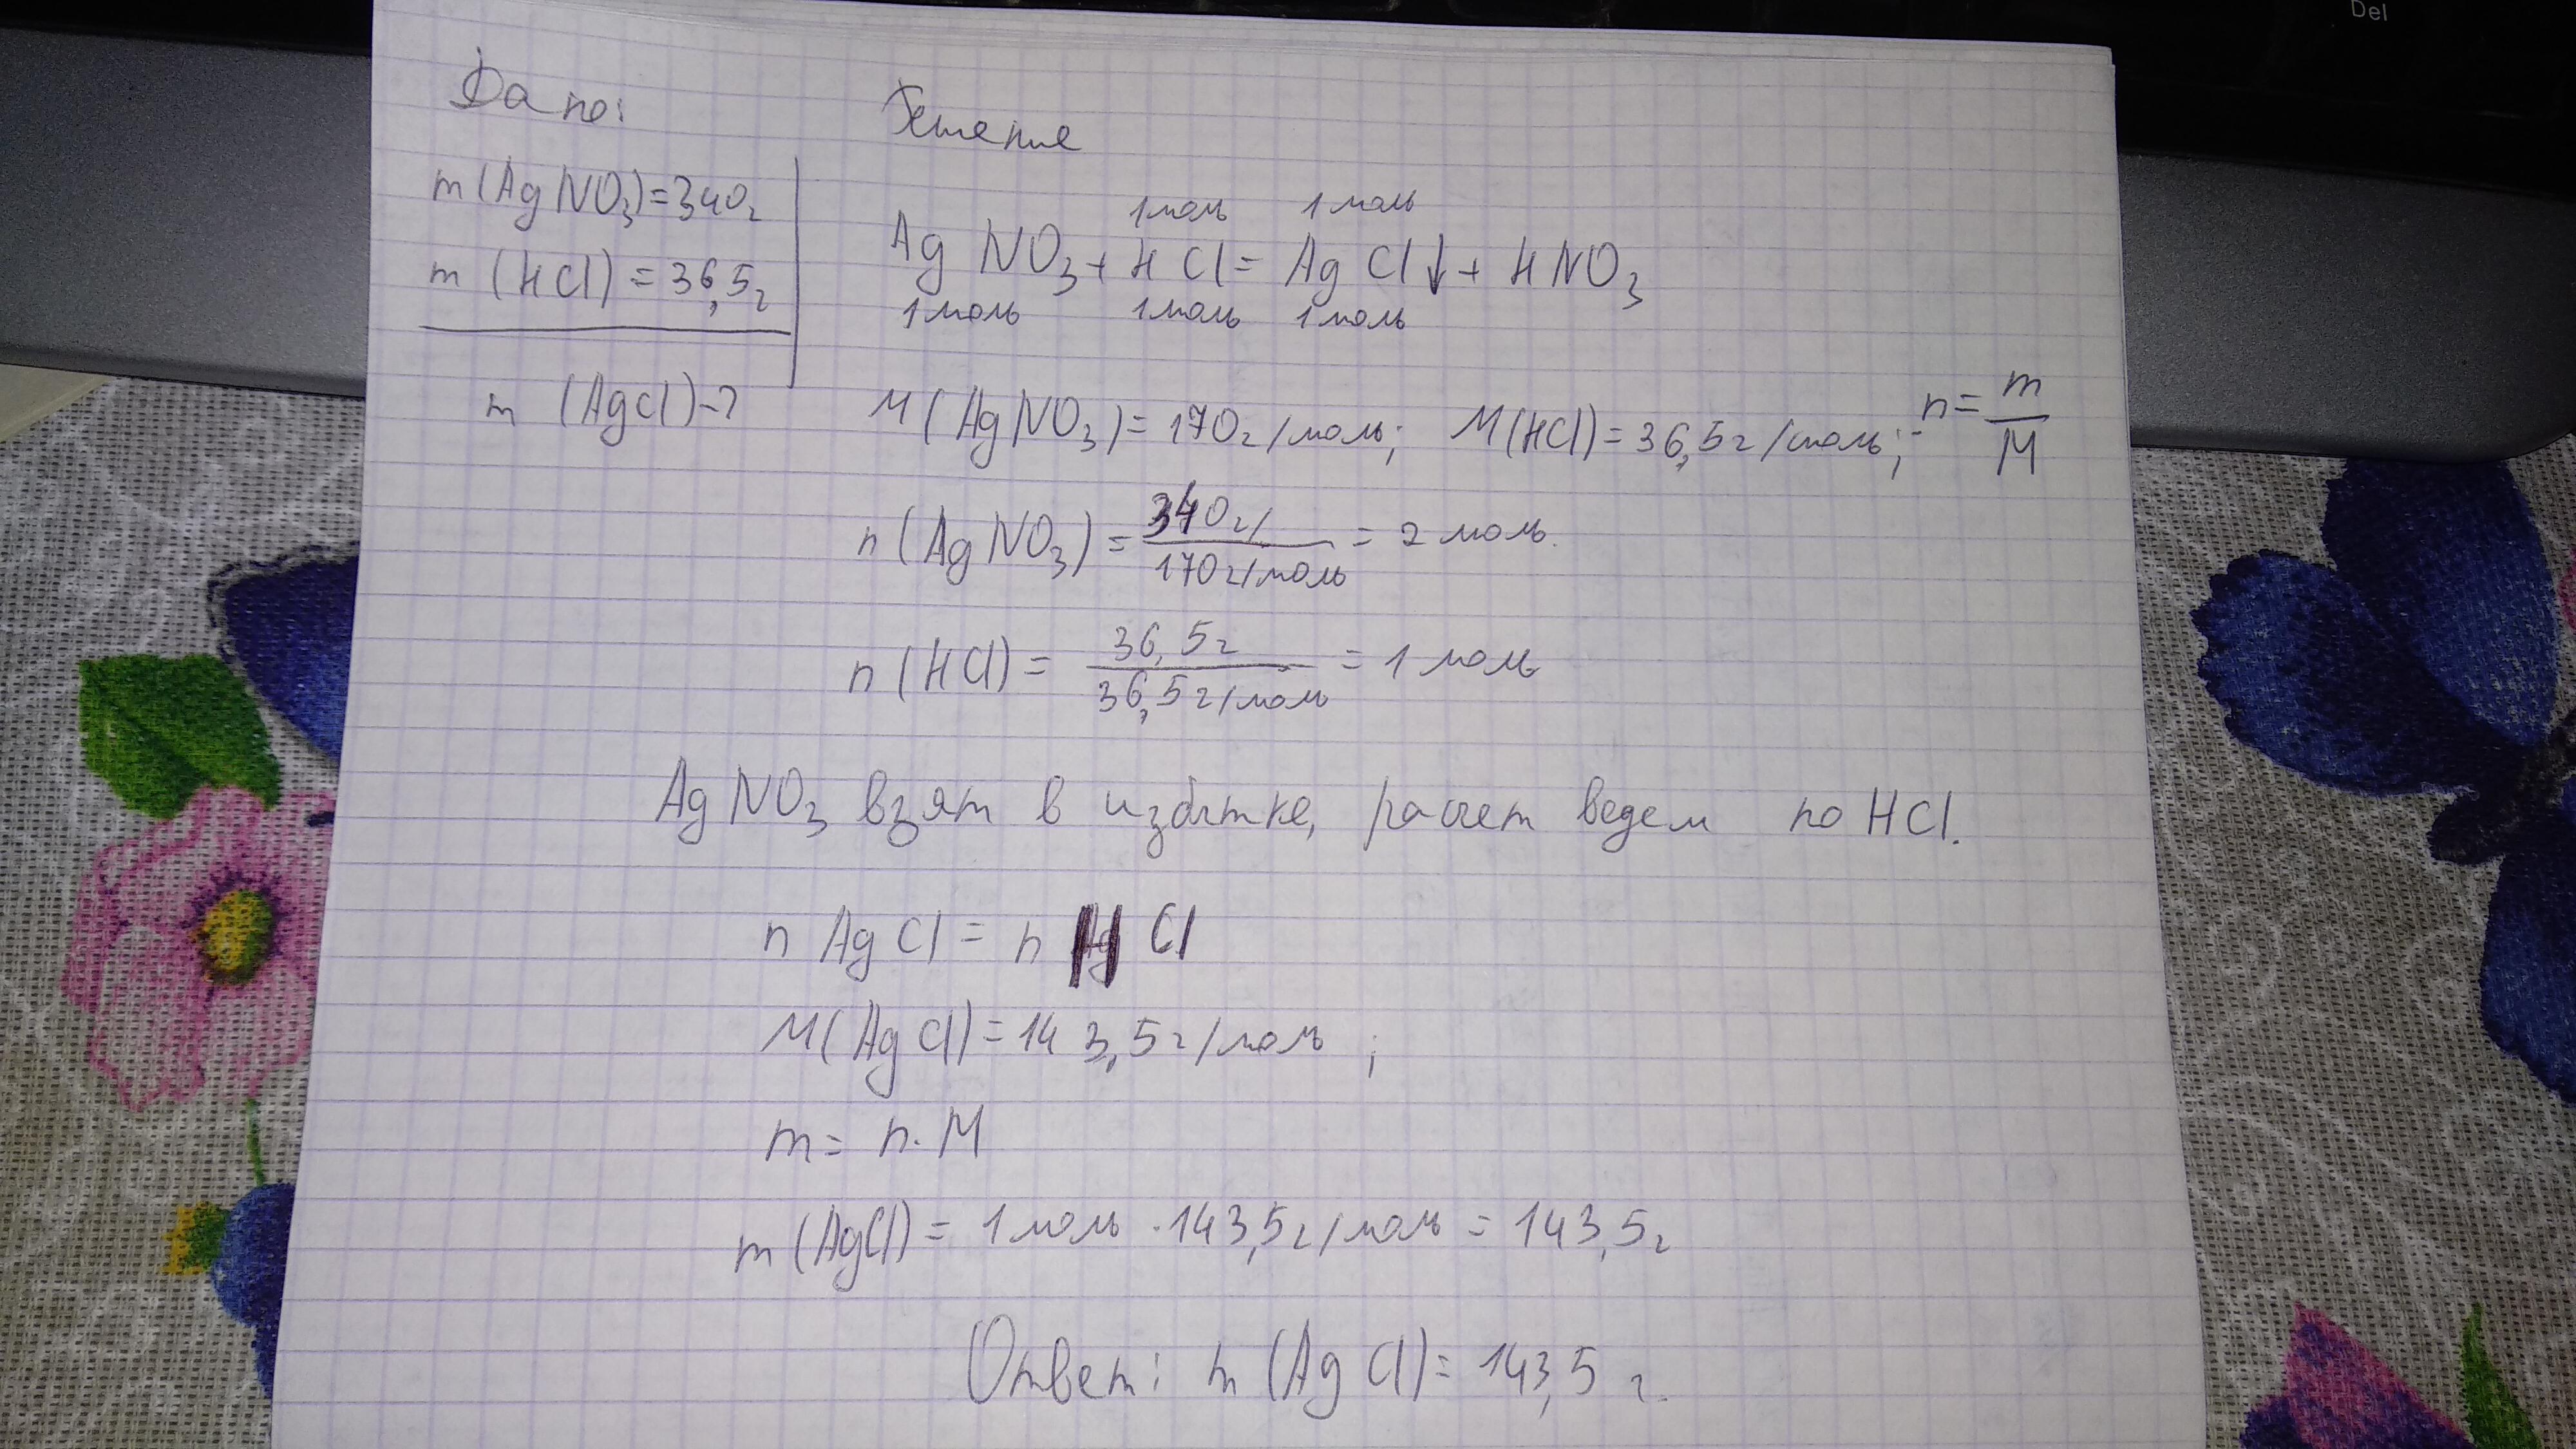 Del
Дано:
Решение
m (AgNO3) = 340г
m (HCl) = 36,5г
m (AgCl) - ?
1 моль 1 моль
AgNO3 + HCl = AgCl↓ + HNO3
1 моль 1 моль 1 моль
M (AgNO3) = 170г/моль; M(HCl) = 36,5г/моль; n = m/M
n (AgNO3) = 340г/170г/моль = 2 моль.
n (HCl) = 36,5г/36,5г/моль = 1 моль
AgNO3 взят в избытке, расчет ведем по HCl.
n AgCl = n HCl
M (AgCl) = 143,5г/моль ;
m = n · M
m (AgCl) = 1 моль · 143,5г/моль = 143,5г
Ответ: m (AgCl) = 143,5 г.